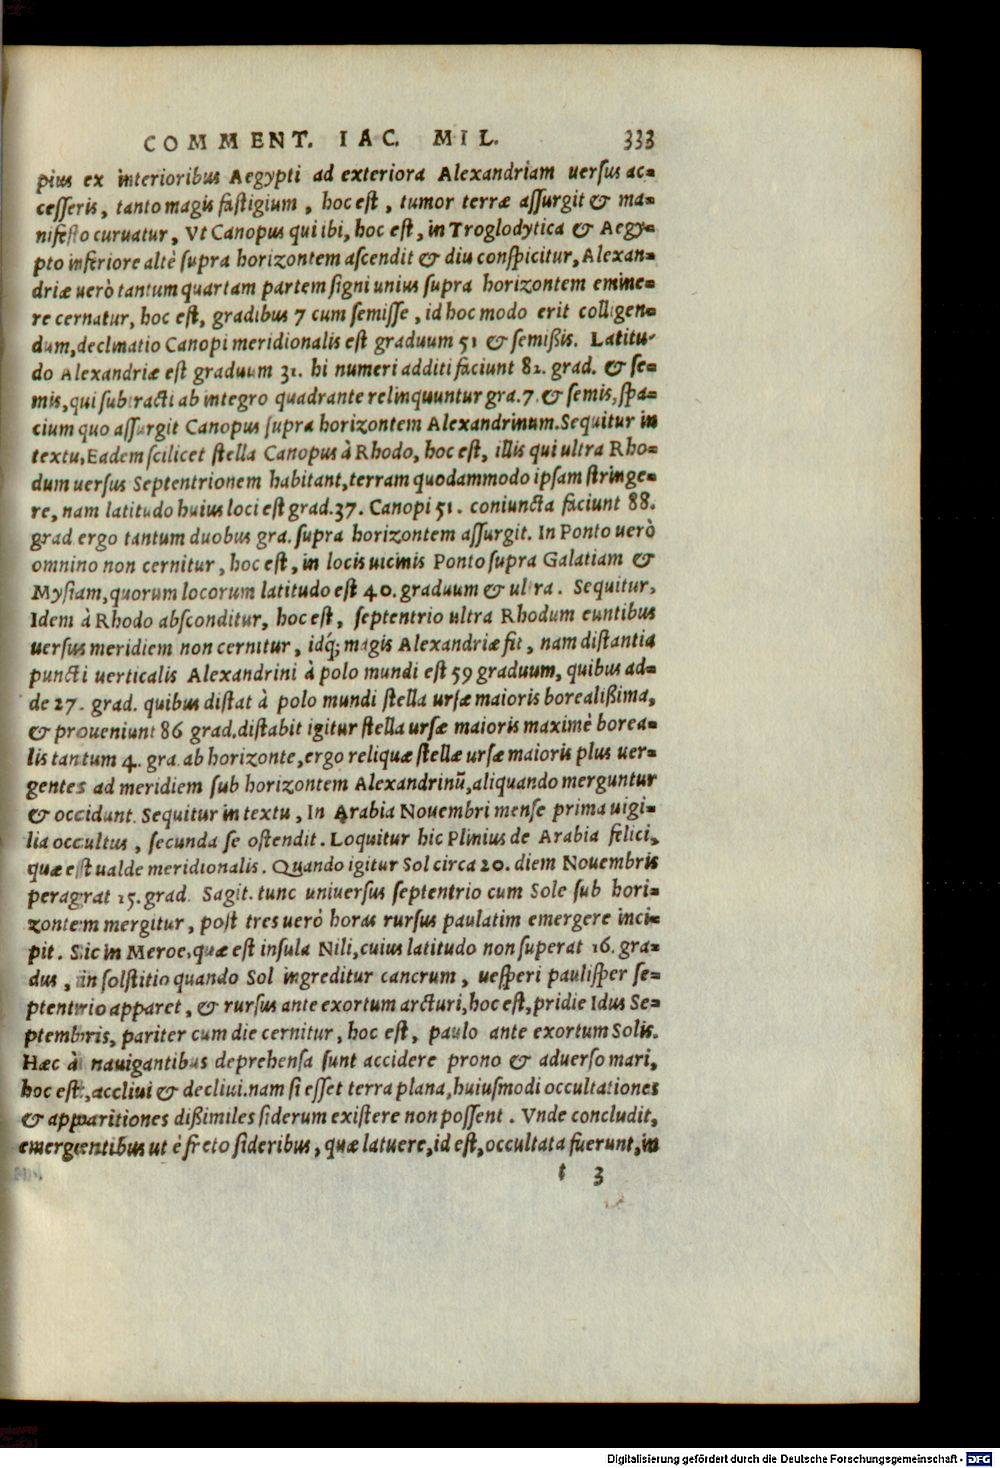 COMMENT. IAC. MIL. 333
pius ex interioribus Aegypti ad exteriora Alexandriam uersus ac-
cesseris, tanto magis fastigium, hoc est, tumor terræ assurgit & ma-
nifesto curuatur, Vt Canopus qui ibi, hoc est, in Troglodytica & Aegy-
pto inferiore altè supra horizontem ascendit & diu conspicitur, Alexan-
driæ uerò tantum quartam partem signi unius supra horizontem emine-
re cernatur, hoc est, gradibus 7 cum semisse, id hoc modo erit colligen-
dum, declinatio Canopi meridionalis est graduum 51 & semißis. Latitu-
do Alexandriæ est graduum 31. hi numeri additi faciunt 82. grad. & se-
mis, qui subtracti ab integro quadrante relinquuntur gra. 7. & semis, spa-
cium quo assurgit Canopus supra horizontem Alexandrinum. Sequitur in
textu, Eadem scilicet stella Canopus à Rhodo, hoc est, illis qui ultra Rho-
dum uersus Septentrionem habitant, terram quodammodo ipsam stringe-
re, nam latitudo huius loci est grad. 37. Canopi 51. coniuncta faciunt 88.
grad ergo tantum duobus gra. supra horizontem assurgit. In Ponto uerò
omnino non cernitur, hoc est, in locis uicinis Ponto supra Galatiam &
Mysiam, quorum locorum latitudo est 40. graduum & ultra. Sequitur,
Idem à Rhodo absconditur, hoc est, septentrio ultra Rhodum euntibus
uersus meridiem non cernitur, idq́; magis Alexandriæ fit, nam distantia
puncti uerticalis Alexandrini à polo mundi est 59 graduum, quibus ad-
de 27. grad. quibus distat à polo mundi stella ursæ maioris borealißima,
& proueniunt 86 grad. distabit igitur stella ursæ maioris maximè borea-
lis tantum 4. gra. ab horizonte, ergo reliquæ stellæ ursæ maioris plus uer-
gentes ad meridiem sub horizontem Alexandrinũ, aliquando merguntur
& occidunt. Sequitur in textu, In Arabia Nouembri mense prima uigi-
lia occultus, secunda se ostendit. Loquitur hic Plinius de Arabia felici,
quæ est ualde meridionalis. Quando igitur Sol circa 20. diem Nouembris
peragrat 15. grad. Sagit. tunc uniuersus septentrio cum Sole sub hori-
zontem mergitur, post tres uerò horas rursus paulatim emergere inci-
pit. Sic in Meroe, quæ est insula Nili, cuius latitudo non superat 16. gra-
dus, in solstitio quando Sol ingreditur cancrum, uesperi paulisper se-
ptentrio apparet, & rursus ante exortum arcturi, hoc est, pridie Idus Se-
ptembris, pariter cum die cernitur, hoc est, paulo ante exortum Solis.
Hæc à nauigantibus deprehensa sunt accidere prono & aduerso mari,
hoc est, accliui & decliui. nam si esset terra plana, huiusmodi occultationes
& apparitiones dißimiles siderum existere non possent. Vnde concludit,
emergentibus ut è freto sideribus, quæ latuere, id est, occultata fuerunt, in
t 3
Digitalisierung gefördert durch die Deutsche Forschungsgemeinschaft - DFG